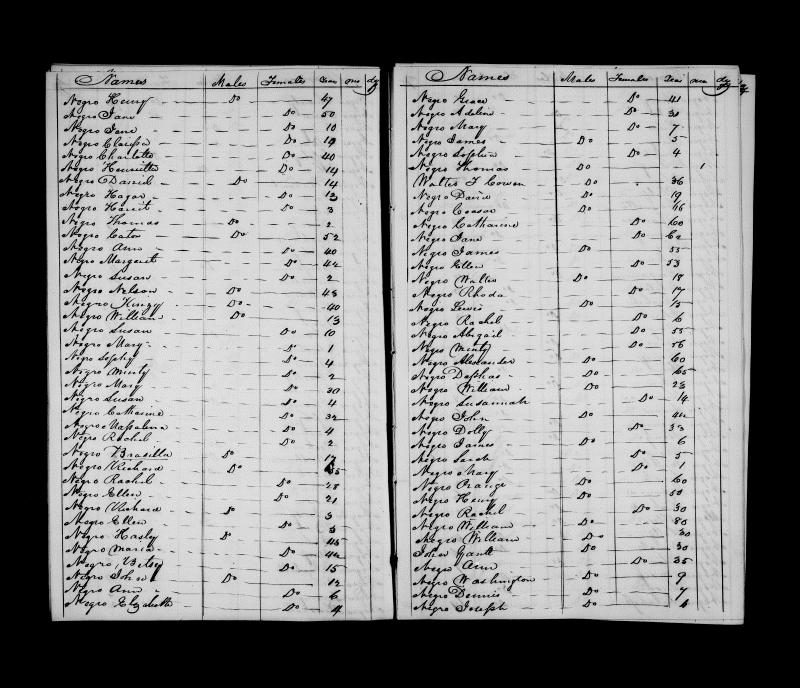 Names Males Females Years mos dys
Negro Henry Do 47
Negro Jane Do 50
Negro Jane Do 10
Negro Clarissa Do 19
Negro Charlotte Do 40
Negro Henrietta Do 14
Negro Daniel Do 14
Negro Hagar Do 13
Negro Harriet Do 3
Negro Thomas Do 2
Negro Cator Do 52
Negro Ann Do 40
Negro Margaret Do 44
Negro Susan Do 2
Negro Nelson Do 48
Negro Kinzy Do 40
Negro William Do 13
Negro Susan Do 10
Negro Mary Do 1
Negro Sophy Do 4
Negro Minty Do 2
Negro Mary Do 30
Negro Susan Do 4
Negro Catharine Do 32
Negro Do 4
Negro Rachel Do 2
Negro Brasilla Do 17
Negro Richard Do
Negro Rachel Do 28
Negro Ellen Do 21
Negro Richard Do 3
Negro Ellen Do 3
Negro Hasly Do 45
Negro Maria Do 44
Negro Betsy Do 15
Negro John Do 12
Negro Ann Do 6
Negro Elizabeth Do 4
Names Males Females Years mos dys
Negro Grace Do 41
Negro Adeline Do 30
Negro Mary Do 7
Negro James Do 5
Negro Sophia Do 4
Negro Thomas Do 1
Walter T Cowen Do 36
Negro David Do 19
Negro Ceasar Do 16
Negro Catharine Do 60
Negro Jane Do 60
Negro James Do 55
Negro Ellen Do 53
Negro Walter Do 18
Negro Rhoda Do 17
Negro Lewis Do 15
Negro Rachel Do 6
Negro Abigail Do 55
Negro Minty Do 56
Negro Alexander Do 60
Negro Do 65
Negro William Do 28
Negro Susannah Do 14
Negro John Do 44
Negro Dolly Do 33
Negro James Do 6
Negro Sarah Do 5
Negro Mary Do 1
Negro Orange Do 60
Negro Henry Do 50
Negro Rachel Do 30
Negro William Do 80
Negro William Do 30
John Gantt Do 30
Negro Ann Do 35
Negro Washington Do 9
Negro Dennis Do 7
Negro Joseph Do 4